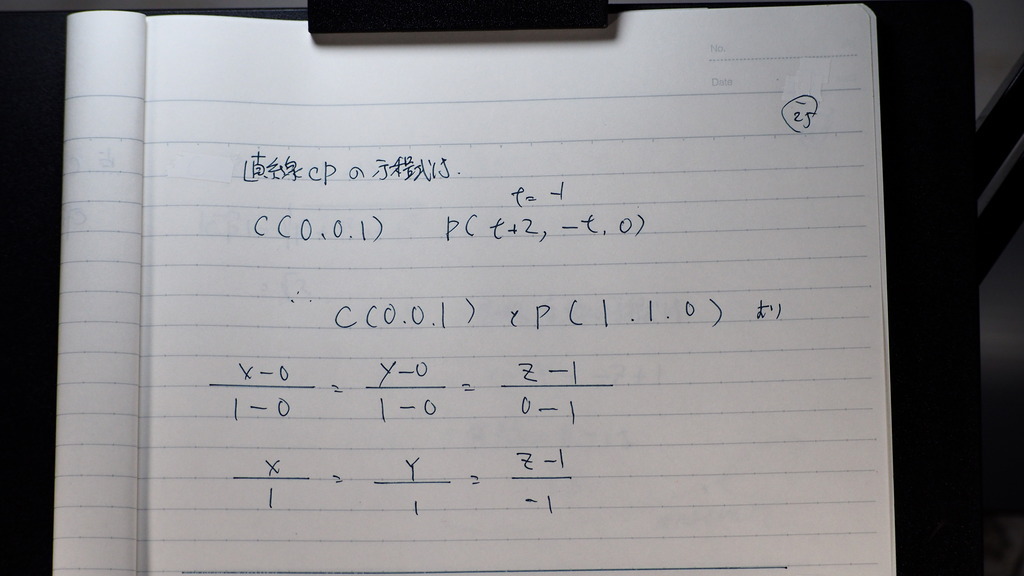 No.
Date
25
直線CPの方程式は.
t = -1
C(0,0.1) P(t+2, -t, 0)
∴ C(0.0.1) と P(1.1.0) より
x-0/1-0 = y-0/1-0 = z-1/0-1
x/1 = y/1 = z-1/-1